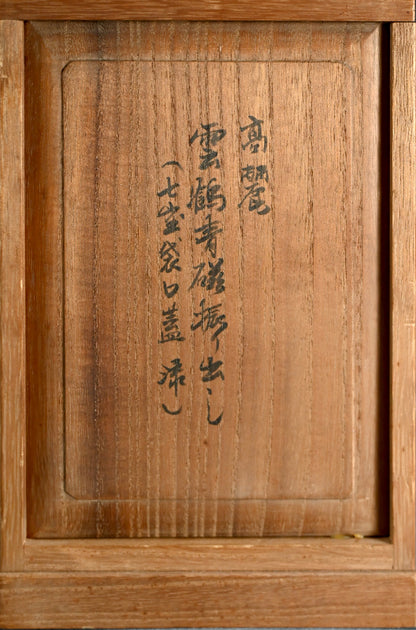 高麗
雲鶴青磁振り出し
(七宝袋口蓋添)